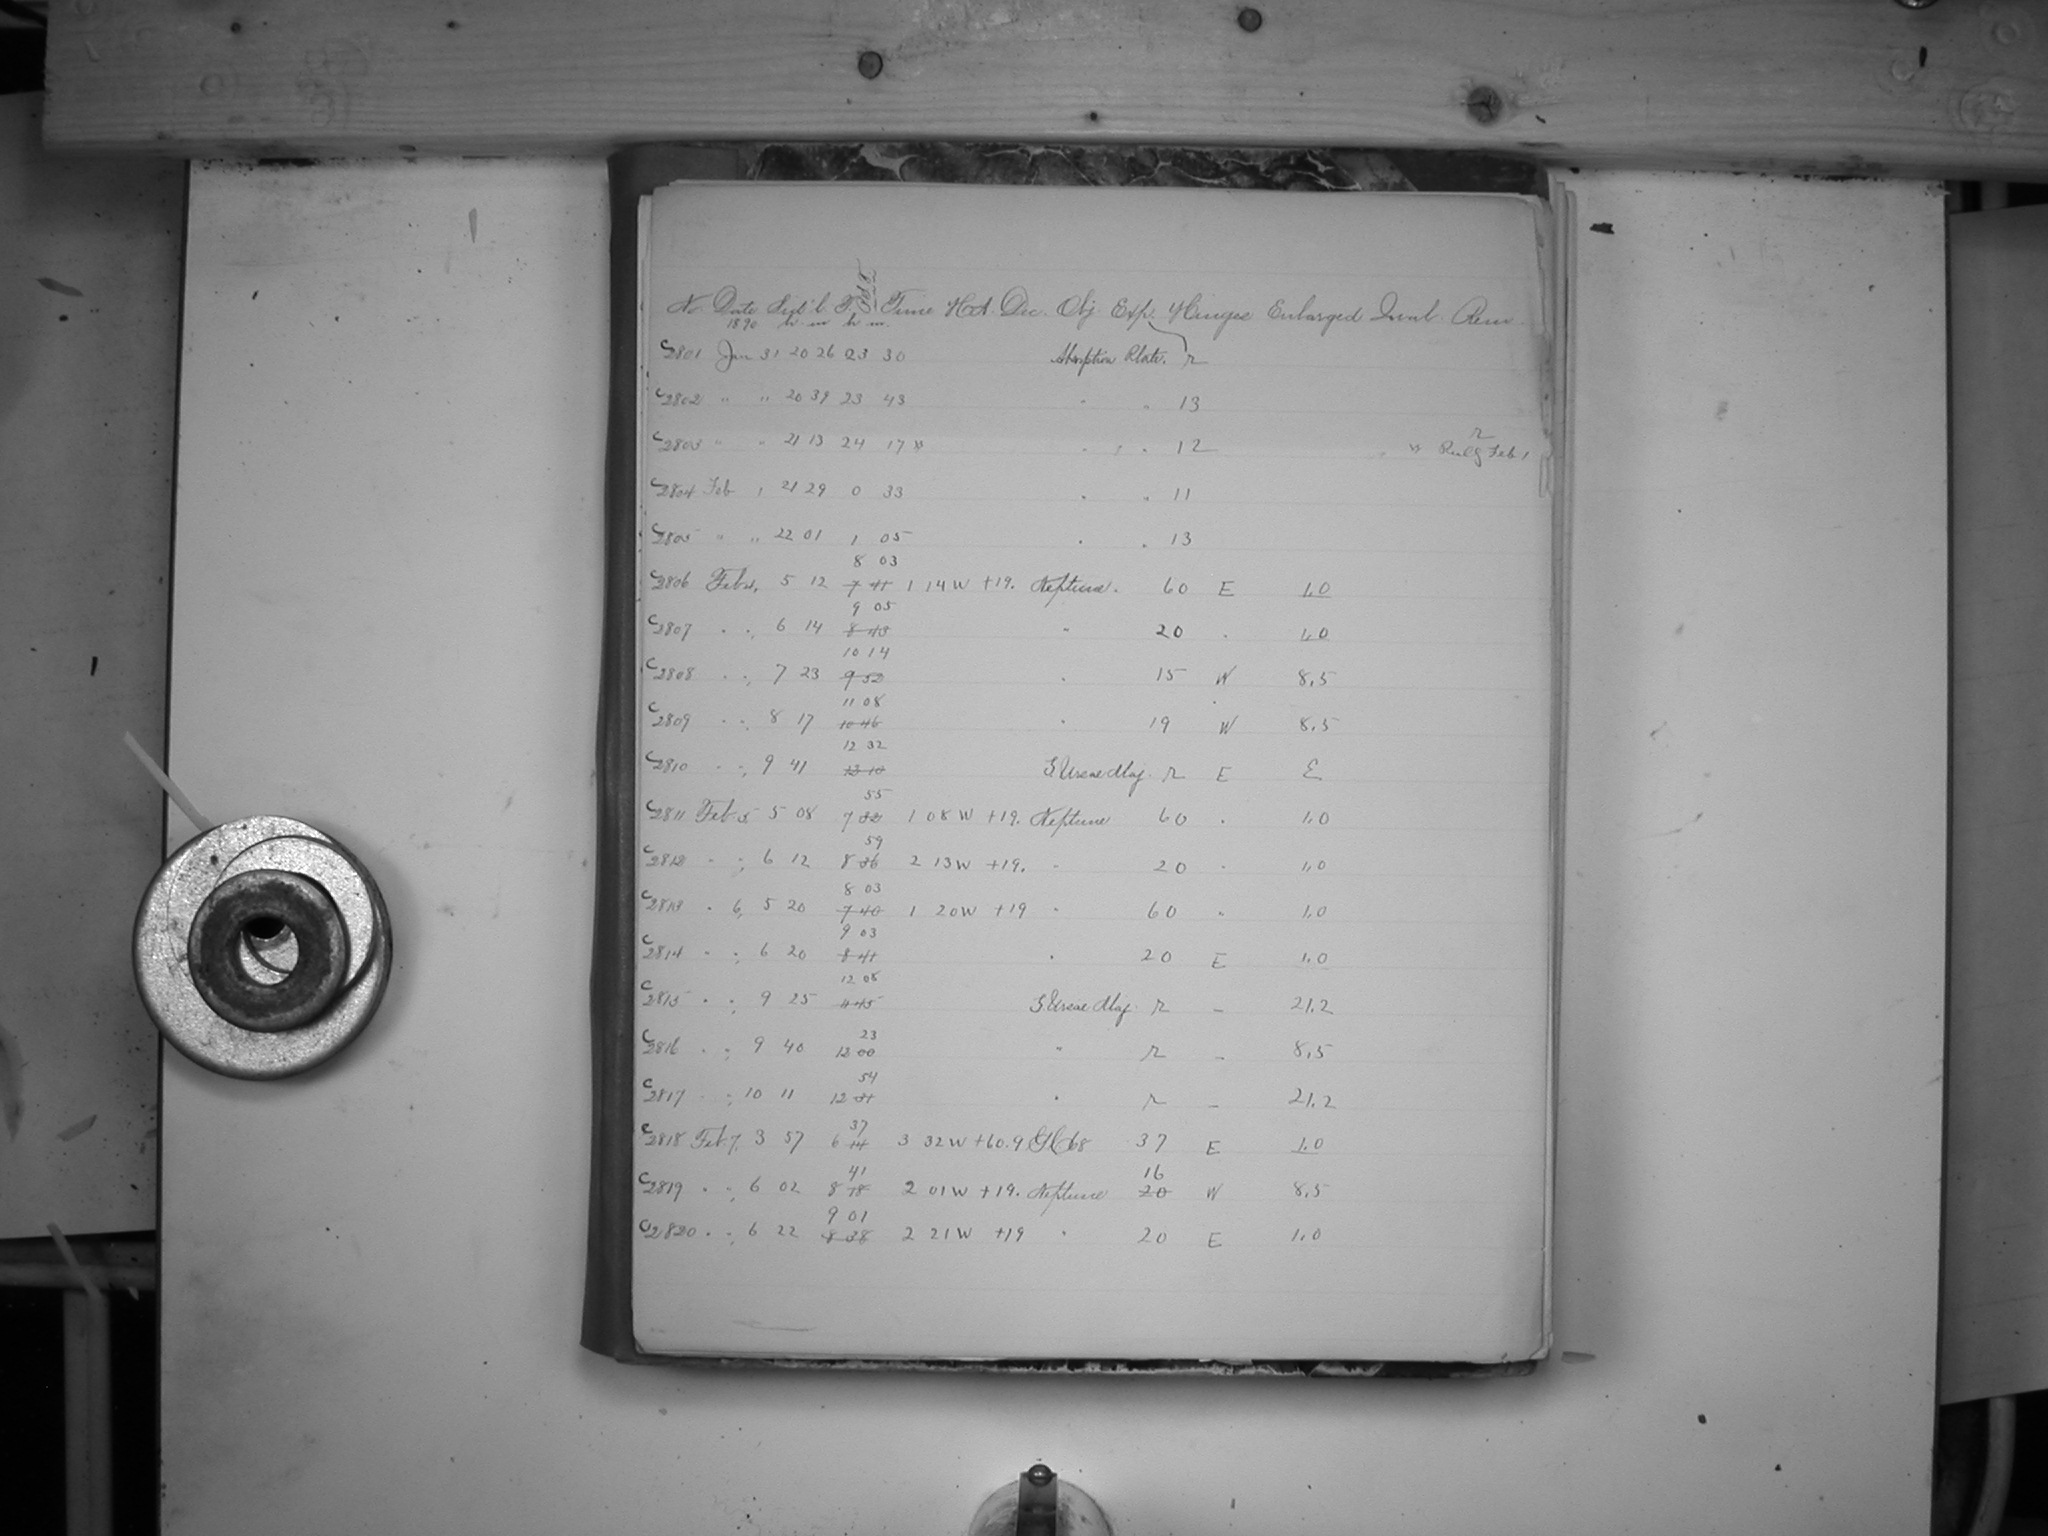 No Date Sid'l T. Time H.A. Dec. Obj. Exp. Hinges Enlarged Qual. Rem.
1890 h m h m.
C2801 Jan 31 20 26 23 30 Absorption Plate. r
C2802 " " 20 39 23 43 " " 13
C2803 " " 21 13 24 17 * " " 12 * Feb 1
C2804 Feb 1 21 29 0 33 " " 11
C2805 " " 22 01 1 05 " " 13
8 03
C2806 Feb 4, 5 12 7 41 1 14 W +19. Neptune. 60 E 1.0
9 05
C2807 " ", 6 14 8 43 " 20 " 1.0
10 14
C2808 " ", 7 23 9 52 " 15 W 8.5
11 08
C2809 " ", 8 17 10 46 " 19 W 8.5
12 32
C2810 " ", 9 41 12 10 Ursae Maj. r E E
55
C2811 Feb. 5 5 08 7 32 1 08 W +19. Neptune 60 " 1.0
59
C2812 " ", 6 12 8 36 2 13 W +19. " 20 " 1.0
8 03
C2813 " 6, 5 20 7 40 1 20 W +19 " 60 " 1.0
9 03
C2814 " ", 6 20 8 41 " 20 E 1.0
12 08
C2815 " ", 9 25 11 45 Ursae Maj. r - 21.2
23
C2816 " ", 9 40 12 00 " r - 8.5
54
C2817 " ", 10 11 12 31 " r - 21.2
37
C2818 Feb 7, 3 57 6 14 3 32 W +60.9 G.C. 68 37 E 1.0
41 16
C2819 " ", 6 02 8 18 2 01 W +19. Neptune 20 W 8.5
9 01
C2820 " ", 6 22 8 38 2 21 W +19 " 20 E 1.0